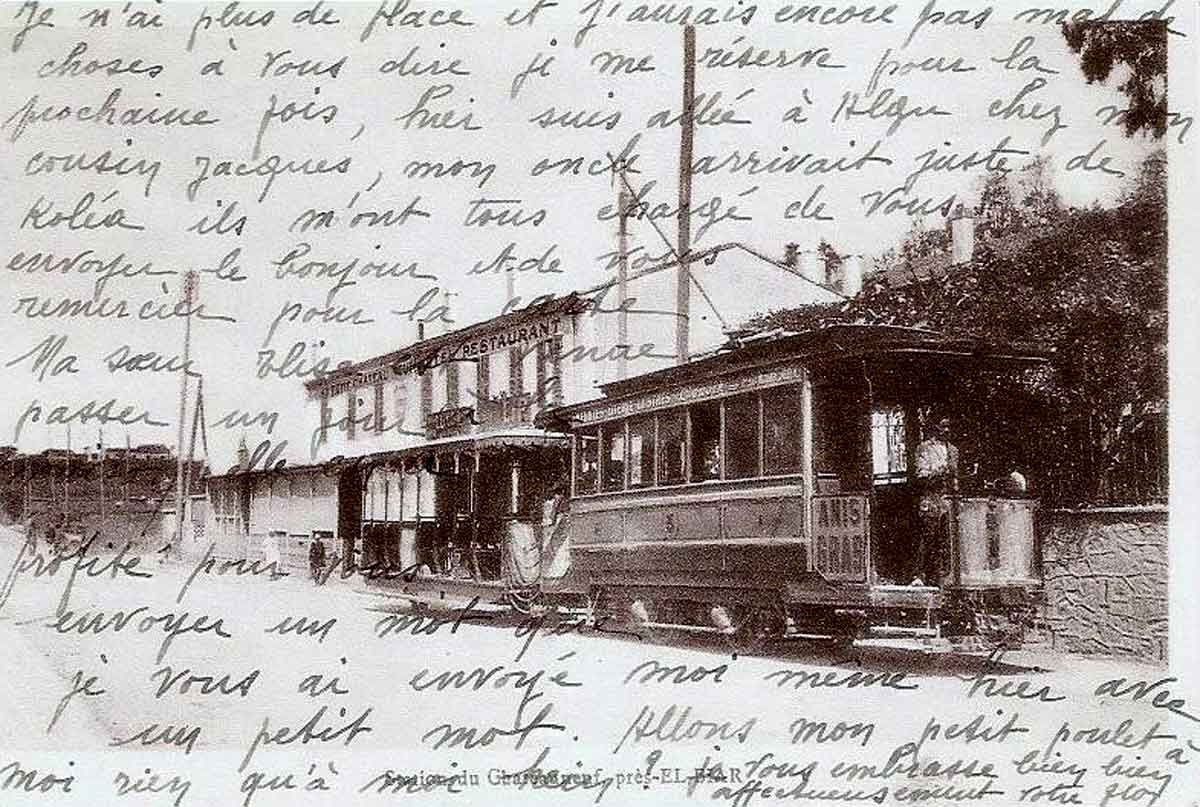 Je n'ai plus de place et j'aurais encore pas mal de
choses à vous dire je me réserve pour la
prochaine fois, hier suis allée à Alger chez mon
cousin Jacques, mon oncle arrivait juste de
Koléa ils m'ont tous chargé de vous
envoyer le bonjour et de vous
remercier pour la carte
Ma sœur Elise
passer un jour
elle
RESTAURANT
ANIS
GRAS
profité pour vous
envoyer un mot que
je vous ai envoyé moi même hier avec
un petit mot. Allons mon petit poulet à
moi rien qu'à moi hein? je vous embrasse bien bien
affectueusement votre
Station du Chateauneuf, près EL-BIAR